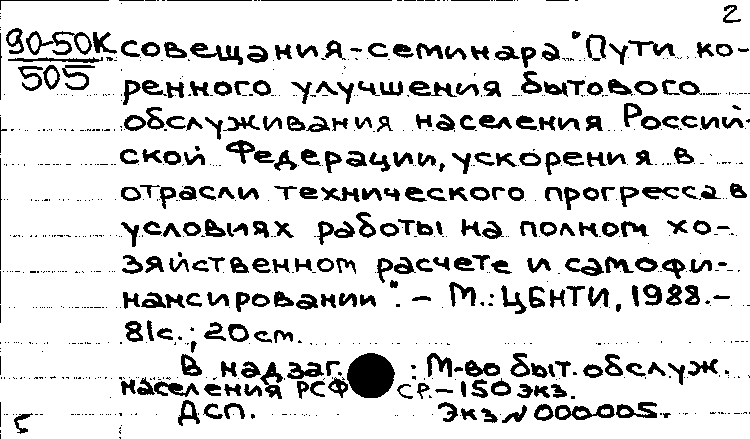 2
90-50К совещания-семинара "Пути ко-
505 ренного улучшения бытового
обслуживания населения Россий-
ской Федерации, ускорения в
отрасли технического прогресса в
условиях работы на полном хо-
зяйственном расчете и самофи-
нансировании". - М.: ЦБНТИ, 1988.-
81с.; 20см.
В надзаг. : М-во быт. обслуж.
населения РСФСР.-150 экз.
ДСП. Экз № 000005.
5